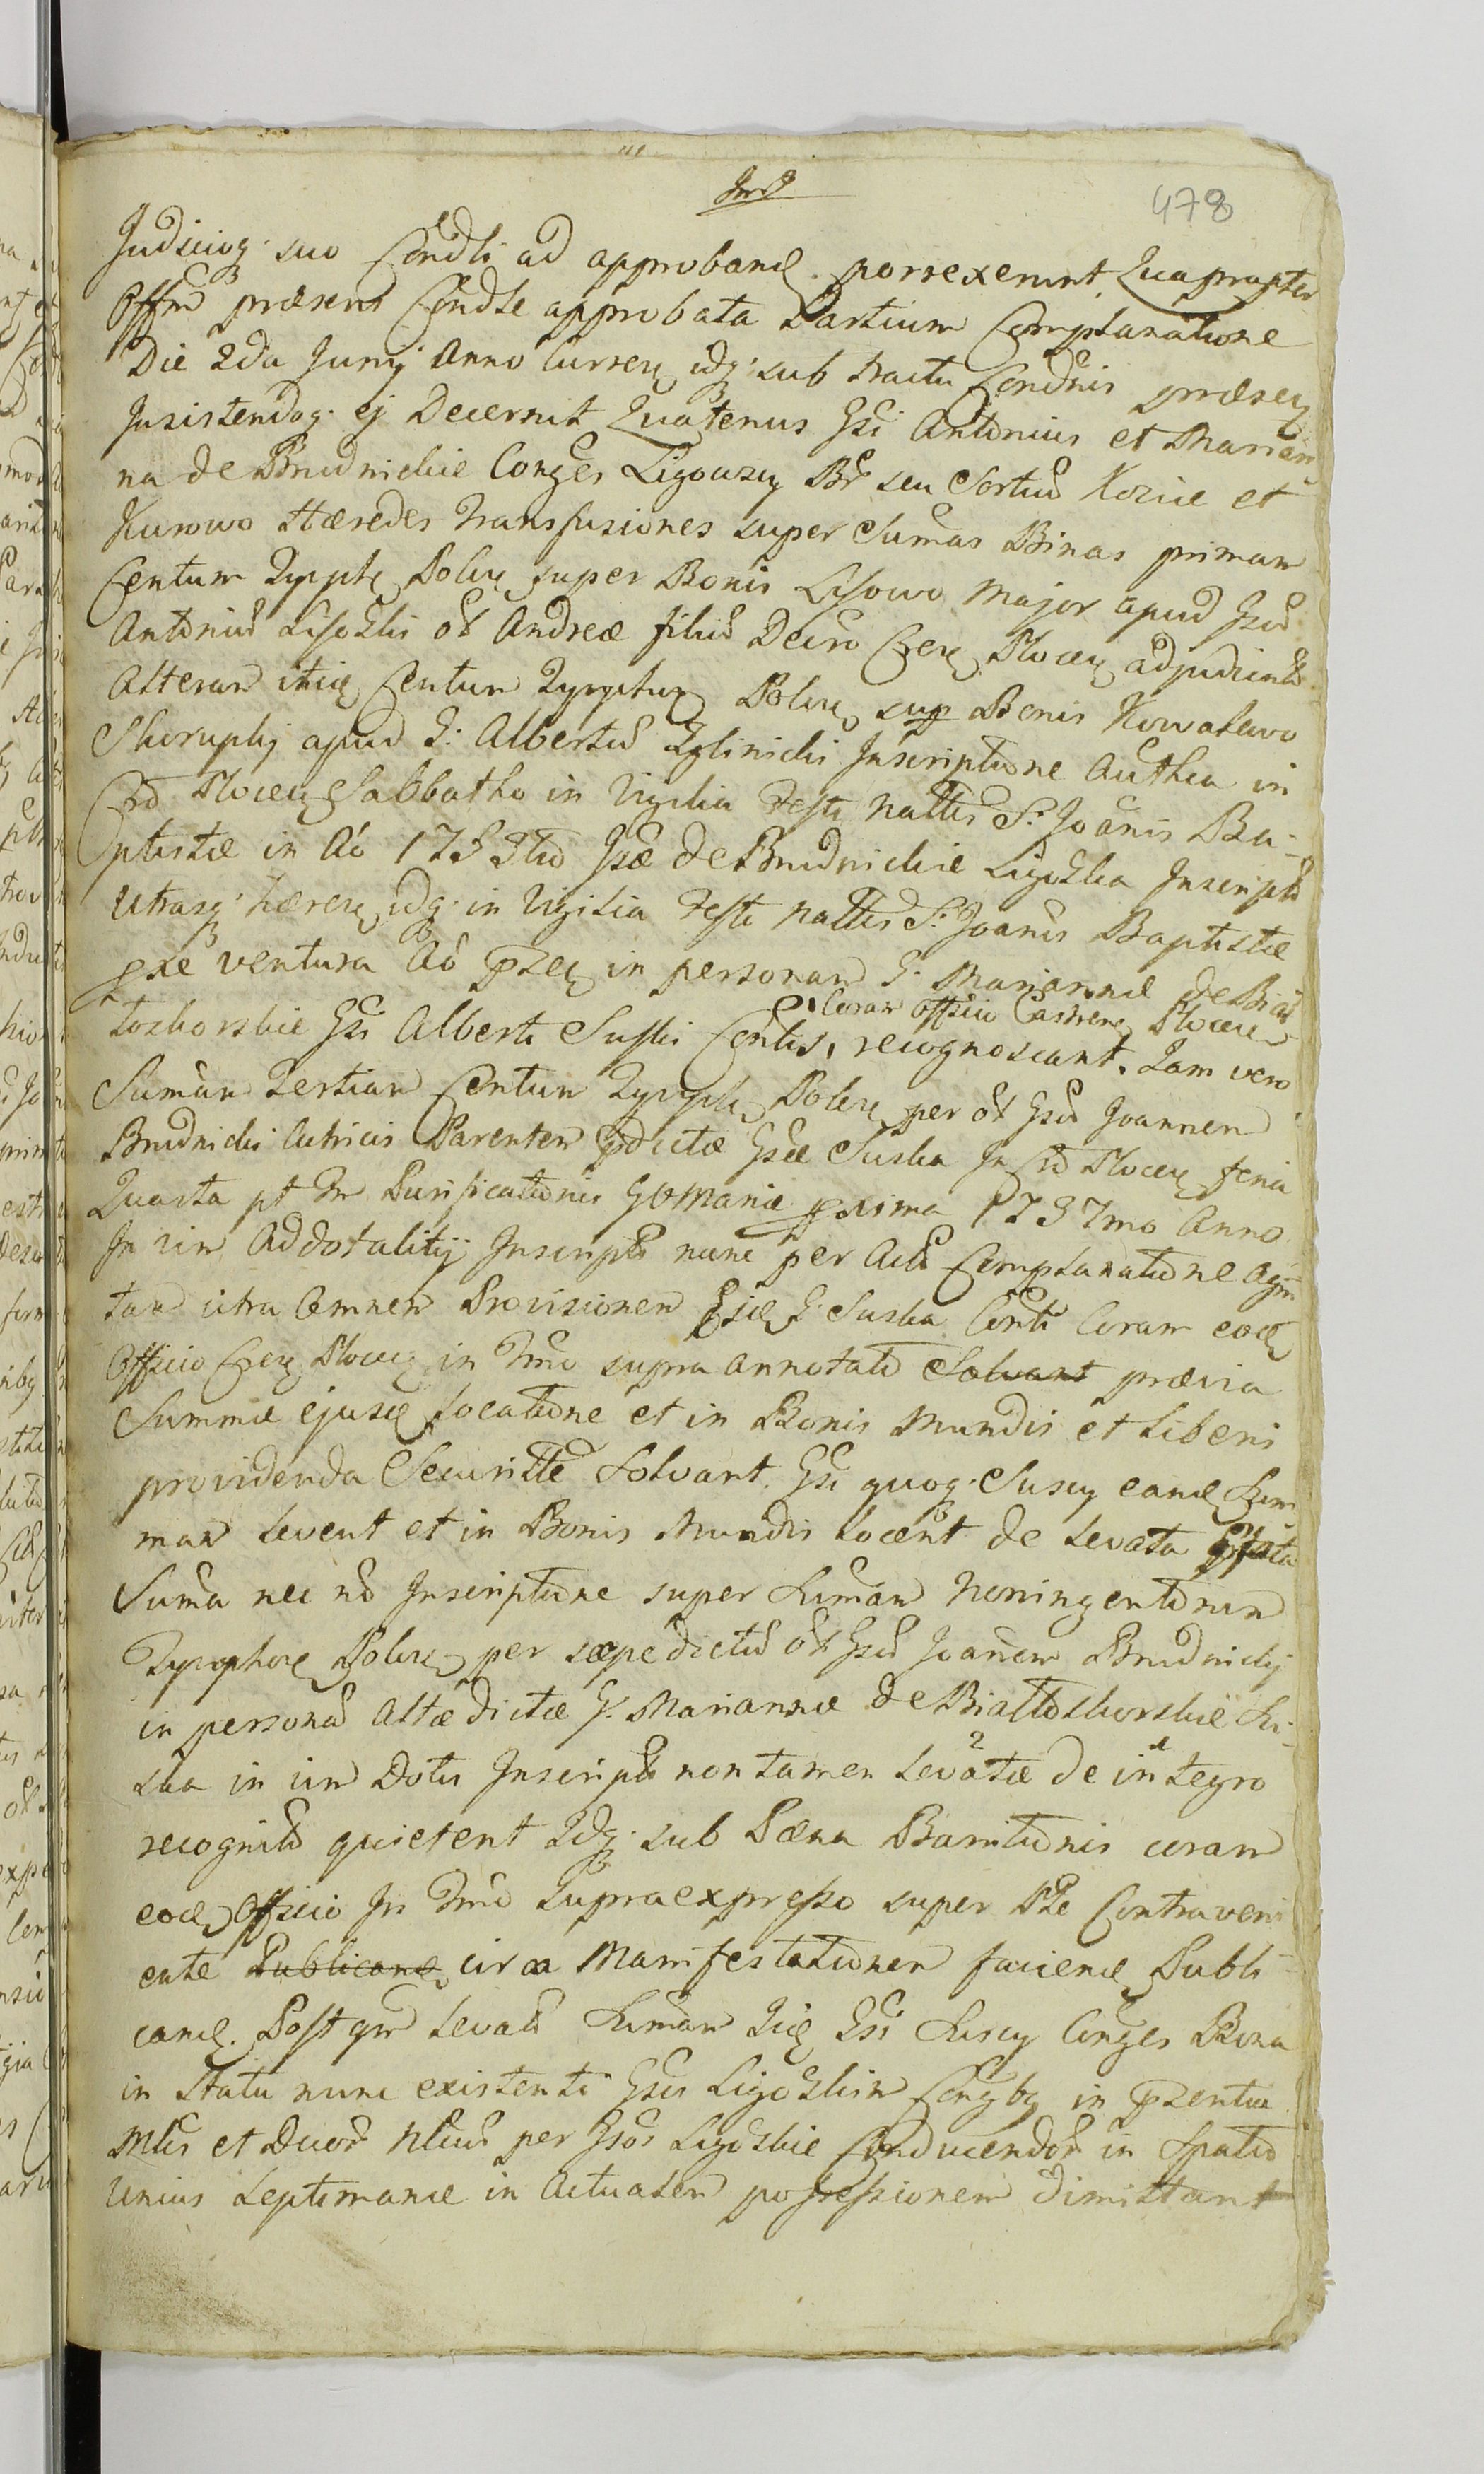 478
Judiciog suo Condli ad approband. porrexerunt. Quapropter
Offm præsens Condle approbata Partium Complanatione
Die 2da Junij Anno curren idq sub nactu Condnis præsen
Insistendog ej Decernit Quatenus Gsi Antonius et Marian
na de Brudnickie Conges Ligowscy Br seu Sortium Kozice et
Kurowo Hæredes Transfusiones super Sumas Binas primam
Centum Tymph Polon super Bonis Lisowo Major apud Gsd
Antonium ob Andreæ filium Decro Plocen adjudicat
Alteram itid Centum Tymphor Polon sup Bonis Kowalewo
Skorupki apud G: Albertum Zglinicki Inscriptione Authca in
Plocen Sabbatho in Vigilia Festi Nattis S: Joanis Ba-
ptistæ in Ao Gsæ de Brudnickie Ligoska Inscript
Utrasq hæren idq in Vigilia Festi Nattis S: Joanis Baptistæ
pxe ventura Ao pzen in personam G. Mariannæ de Biał
Coram officio Castren Plocen
toskorskie Gsi Alberti Suski Contis, recognoscant. Jam vero
Sumam Tertiam Centum Tymph Polon per ob Gsd Joannem
Brudnicki Parentem pdictæ Gsæ Suska In Plocen feria
Quarta pt Fm Purificationis GVMariæ pxima 1737mo Anno
In vim Addotalitij Inscript nunc per Actu Complanatione
tam citra Omnem Provisionem G. Suska Conti Coram eod
Officio Plocen in Tmo supra annotato Solvant prævia
Summæ ejusd locatione et in Bonis Mundis et Liberis
providenda Securitte Solvant. Gsi quoq Suscy eand Sum
mam levent et in Bonis Mundis locent de levata
Suma nec no Inscriptione super Sumam Noningentorum
Tymphor Polon per sæpedictum ob Gsd Joanem Brudnicki
in personam Altæ dictæ G. Mariannæ de Białłoskorskie Su-
ska in vim Dotis Inscript non tamen levatæ de integro
recognita quietent Idq sub Pæna Banitionis coram
eod Officio In Tmo supraexpresso super Pte Contraveni
ente Publicand circa Manifestationem faciend Publi-
cand. Postqm levata Sumam Gsi Suscy Conges Bona
in Statu nunc existenti Gsis Ligoskim Congbq in pzentia
Mlis et Duor Nlium per Gsos Ligoskie Conducendor in Spatio
Unius Septimanæ in Actualem possessionem dimittant